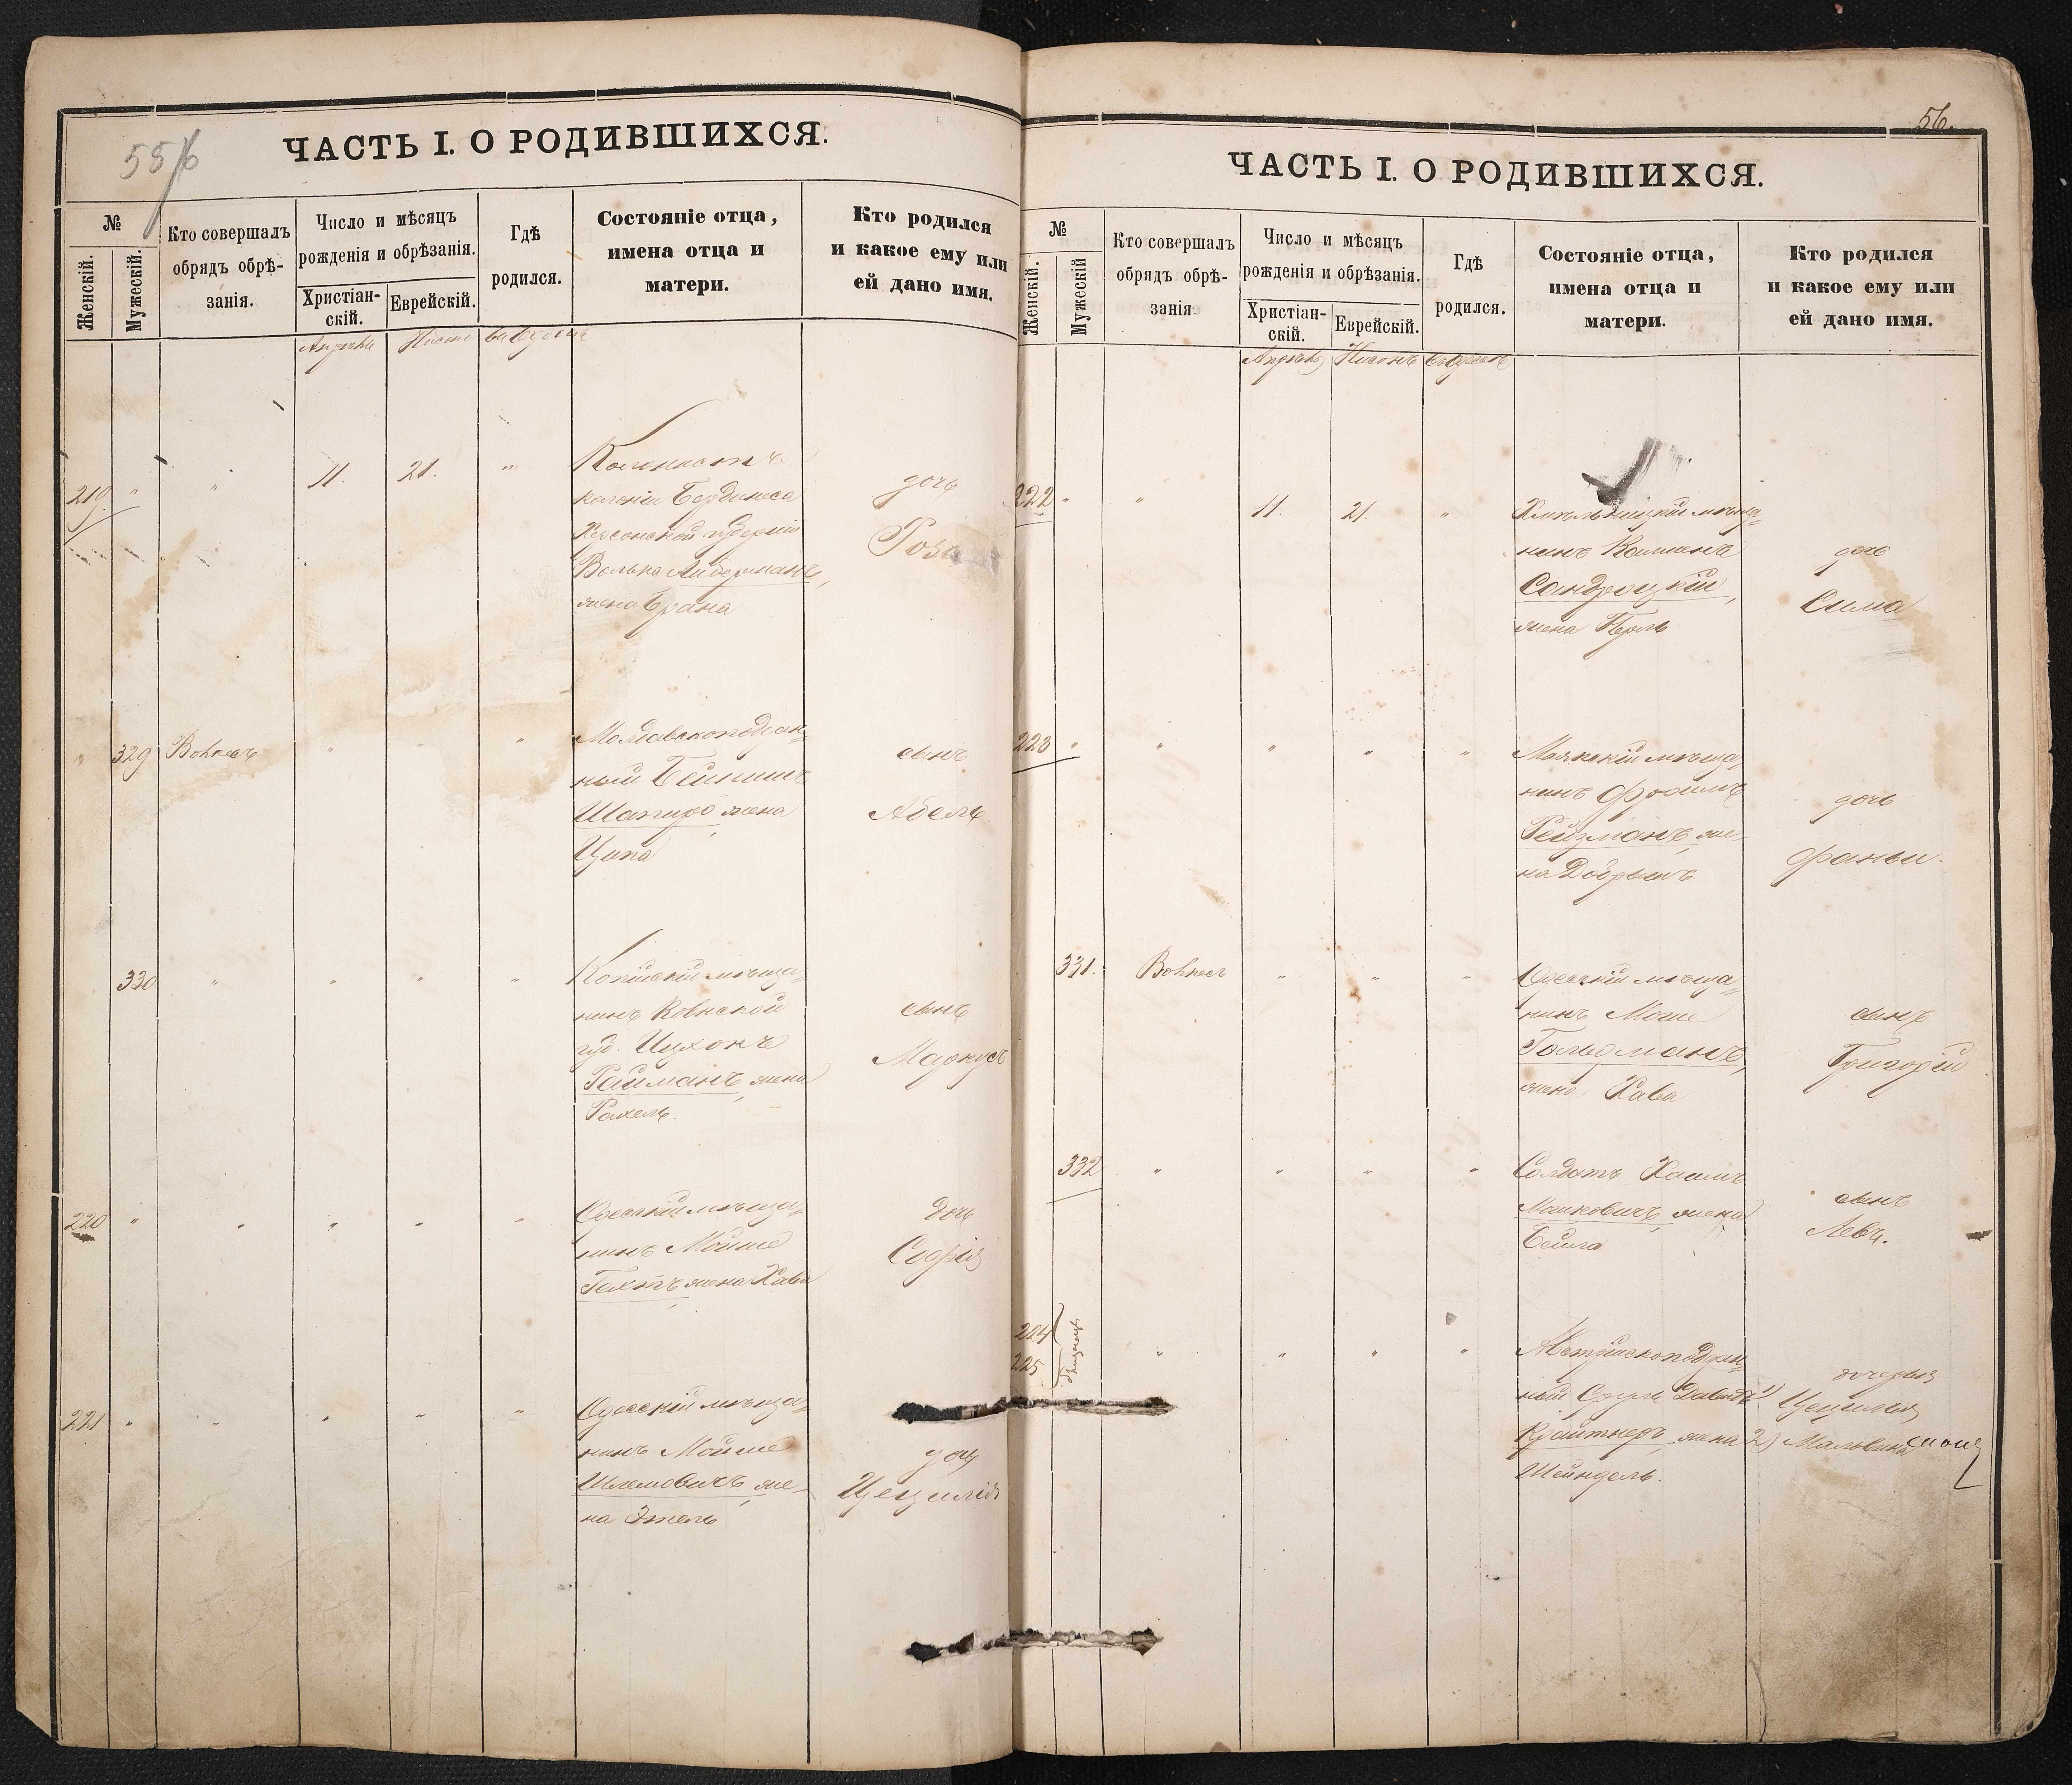 55/6
ЧАСТЬ I. О РОДИВШИХСЯ.
№
Женскій.
Мужескій.
Кто совершалъ
обрядъ обрѣ-
занія.
Число и мѣсяцъ
рожденія и обрѣзанія.
Христіан-
скій.
Еврейскій.
Гдѣ
родился.
Состояніе отца,
имена отца и
матери.
Кто родился
и какое ему или
ей дано имя.
219 " " 11. 21. "
Колонистъ
колоніи
Херсонской губерніи
Волька Либерманъ,
жена Брана
дочь
Роза
" 329 " " "
Молдавскоподдан-
ный Бейнишъ
Шапиро, жена
Ципа
сынъ
Абель
330 " " " "
мѣща-
нинъ Ковнской
губ. Ицхокъ
Райманъ, жена
Рахель.
сынъ
Маркусъ
220 " " " " "
Одесскій мѣща-
нинъ Мойше
жена Хава
дочь
Софія
221 " " " " "
Одесскій мѣща-
нинъ Мойше
Шлемовичъ, же-
на Этель
дочь
Цецилія
56.
ЧАСТЬ I. О РОДИВШИХСЯ.
№
Женскій.
Мужескій
Кто совершалъ
обрядъ обрѣ-
занія
Число и мѣсяцъ
рожденія и обрѣзанія.
Христіан-
скій.
Еврейскій.
Гдѣ
родился.
Состояніе отца,
имена отца и
матери.
Кто родился
и какое ему или
ей дано имя.
Нисонъ
222 " " 11. 21. "
Хмѣльницкій мѣща-
нинъ Калманъ
Сандроцкій,
жена Перль
дочь
Сима
223 " " " " "
Маякскій мѣща-
нинъ Фроимъ
Рейзманъ, же-
на Добрышъ
дочь
Фаньи.
331. " " "
Одесскій мѣща-
нинъ Моше
Гольдманъ,
жена Хава
сынъ
Григорій
332 " " " "
Солдатъ Хаимъ
Машковичъ, жена
Бейла
сынъ
Левъ.
224
225
близнецы
" " " "
Австрійскоподдан-
ный Сруль Давидъ
Крайтнеръ, жена
Шейндель.
1) Цецилья
2) Мальвина